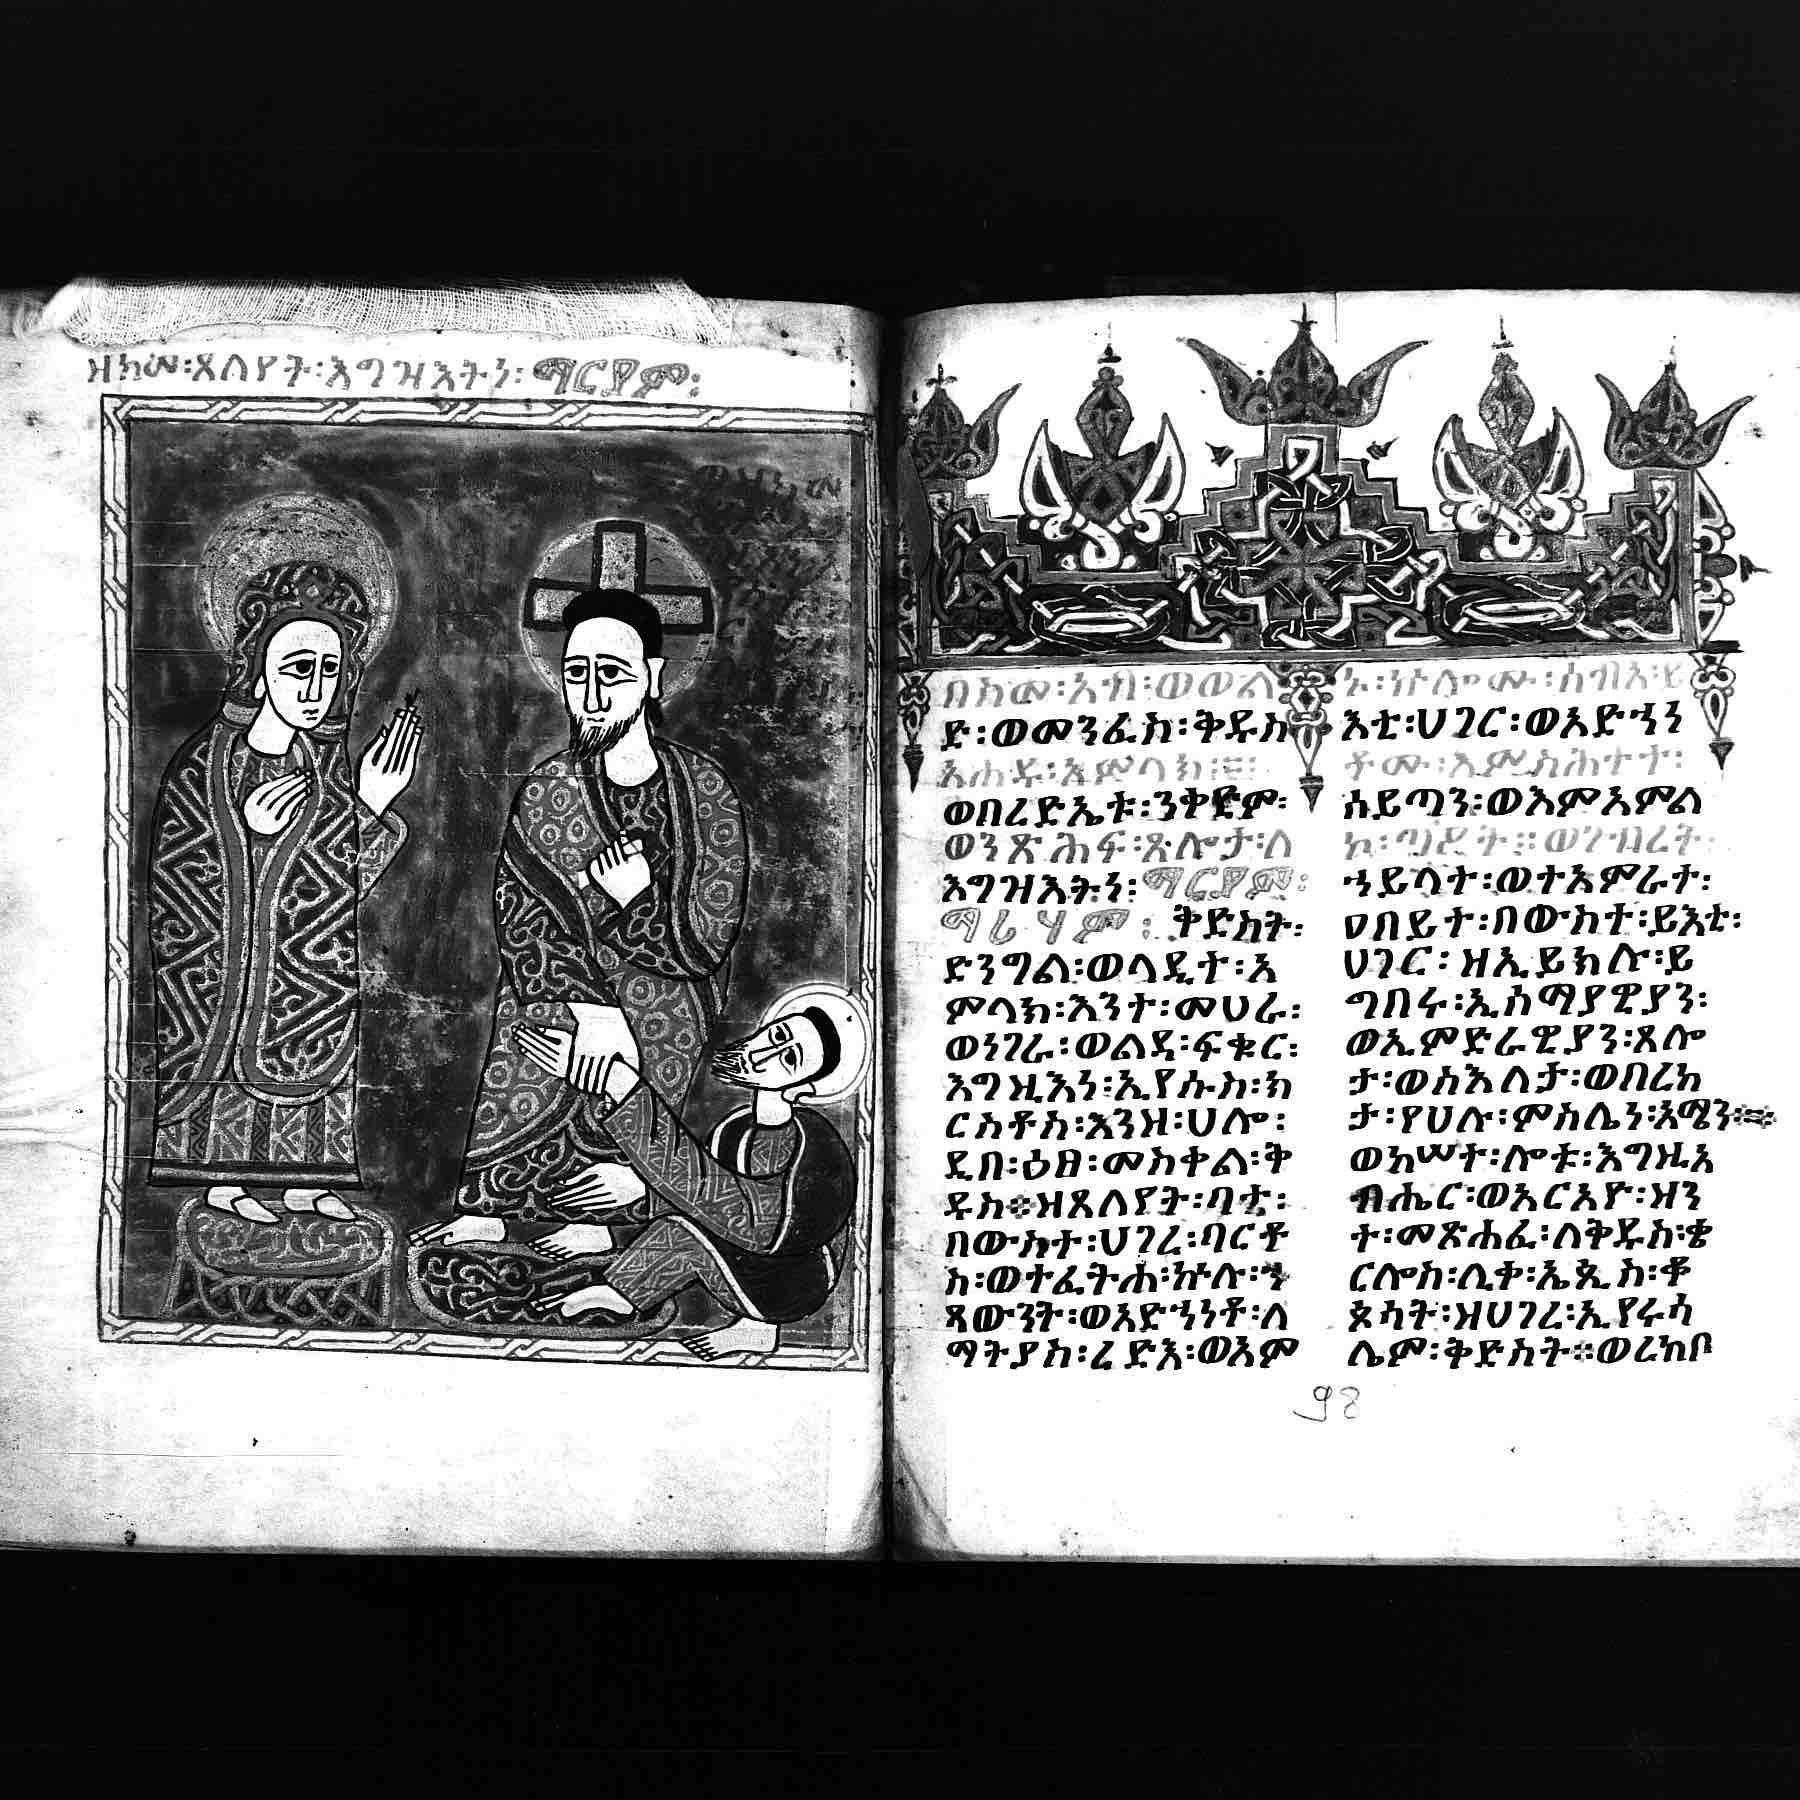 ዘከመ፡ጸለየት፡እግዝእትነ፡ማርያም፡
በስመ፡አብ፡ወወል
ድ፡ወመንፈስ፡ቅዱስ
አሐዱ፡አምላክ፡፡
ወበረድኤቱ፡ንቅድም፡
ወንጽሕፍ፡ጸሎታ፡ለ
እግዝእትነ፡ማርያም፡
ማሪሃም፡ቅድስት፡
ድንግል፡ወላዲተ፡አ
ምላክ፡እንተ፡መሀራ፡
ወነገራ፡ወልዳ፡ፍቁር፡
እግዚእነ፡ኢየሱስ፡ክ
ርስቶስ፡እንዘ፡ሀሎ፡
ዲበ፡ዕፀ፡መስቀል፡ቅ
ዱስ፨ዘጸለየት፡ባቲ፡
በውስተ፡ሀገረ፡ባርቶ
ስ፡ወተፈትሐ፡ኵሉ፡ኀ
ጻውንት፡ወአድኀነቶ፡ለ
ማትያስ፡ረድእ፡ወእም
ኔ፡ኵሎሙ፡ሰብአ፡ይ
እቲ፡ሀገር፡ወአድኀነ
ቶሙ፡እምስሕተተ፡
ሰይጣን፡ወእምአምል
ኮ፡ጣዖት፡፡ወገብረት፡
ኀይላተ፡ወተአምራተ፡
ዐበይተ፡በውስተ፡ይእቲ፡
ሀገር፡ዘኢይክሉ፡ይ
ግበሩ፡ኢሰማያዊያን፡
ወኢምድራዊያን፡ጸሎ
ታ፡ወስእለታ፡ወበረከ
ታ፡የሀሉ፡ምስሌነ፡አሜን፨
ወከሠተ፡ሎቱ፡እግዚአ
ብሔር፡ወአርአዮ፡ዛን
ተ፡መጽሐፈ፡ለቅዱስ፡ቄ
ርሎስ፡ሊቀ፡ኤጲስ፡ቆ
ጶሳት፡ዘሀገረ፡ኢየሩሳ
ሌም፡ቅድስት፨ወረከበ
98